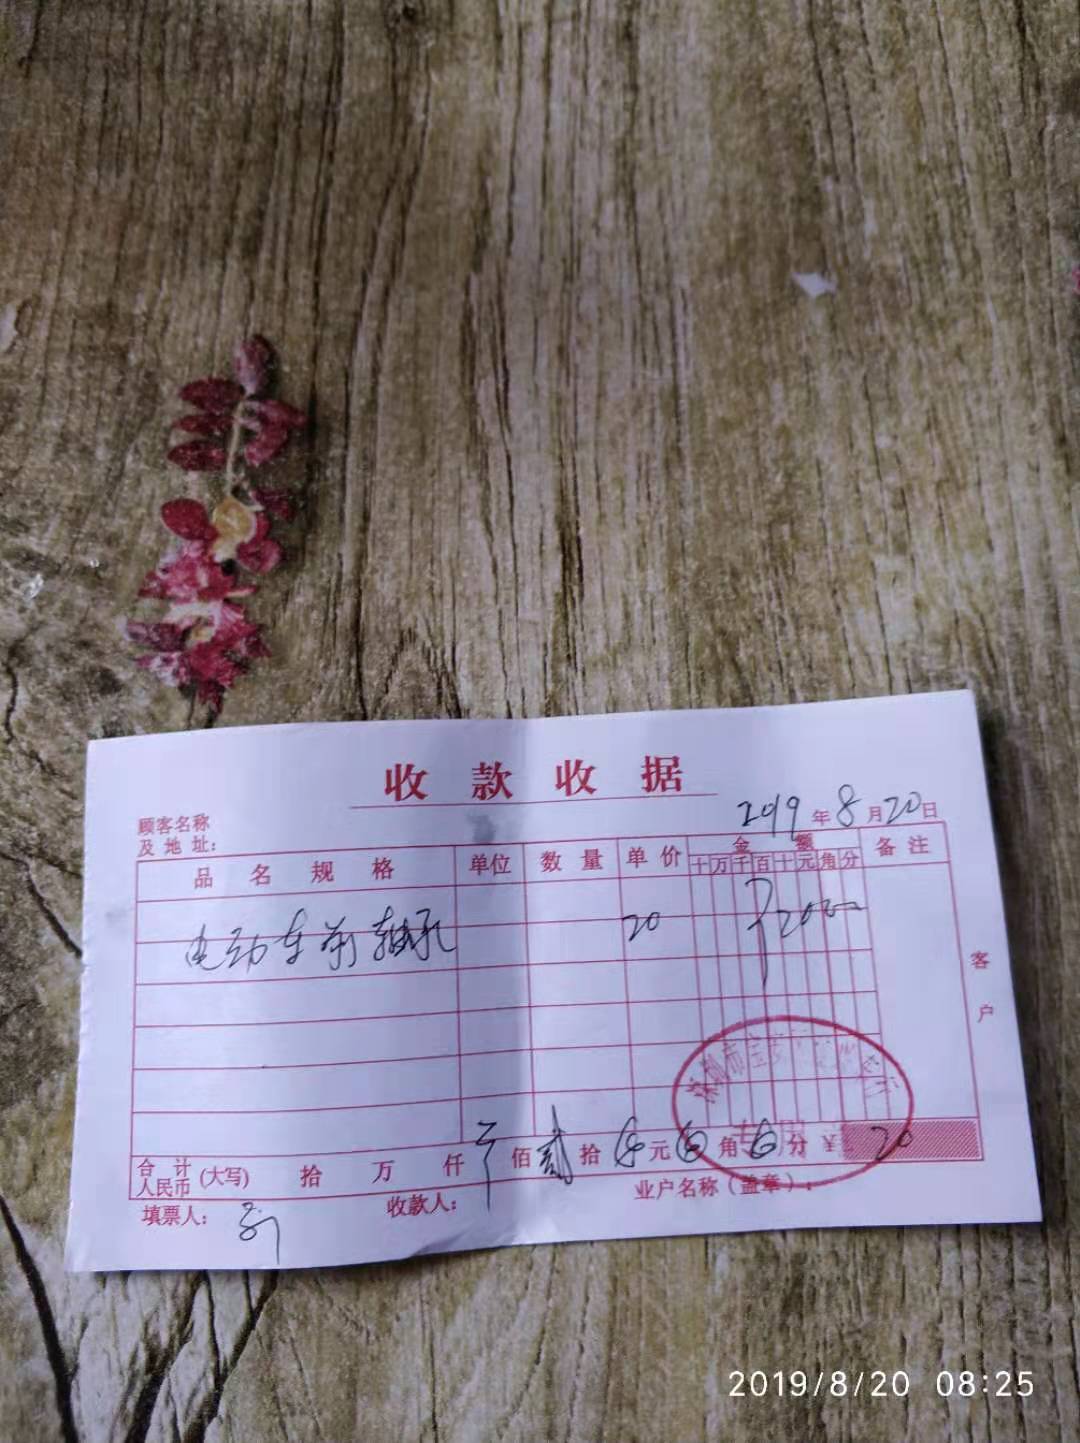 收款收据
2019年8月20日
顾客名称
及地址：
品名规格 单位 数量 单价 金额 备注
十万千百十元角分
电动车前轴承 20 ¥2000
客户
深圳市宝安
合计
人民币(大写) 拾 万 仟 ¥ 佰 贰 拾 零 元 零 角 零 分 ¥ 20
填票人： 收款人： 业户名称(盖章)：
2019/8/20 08:25